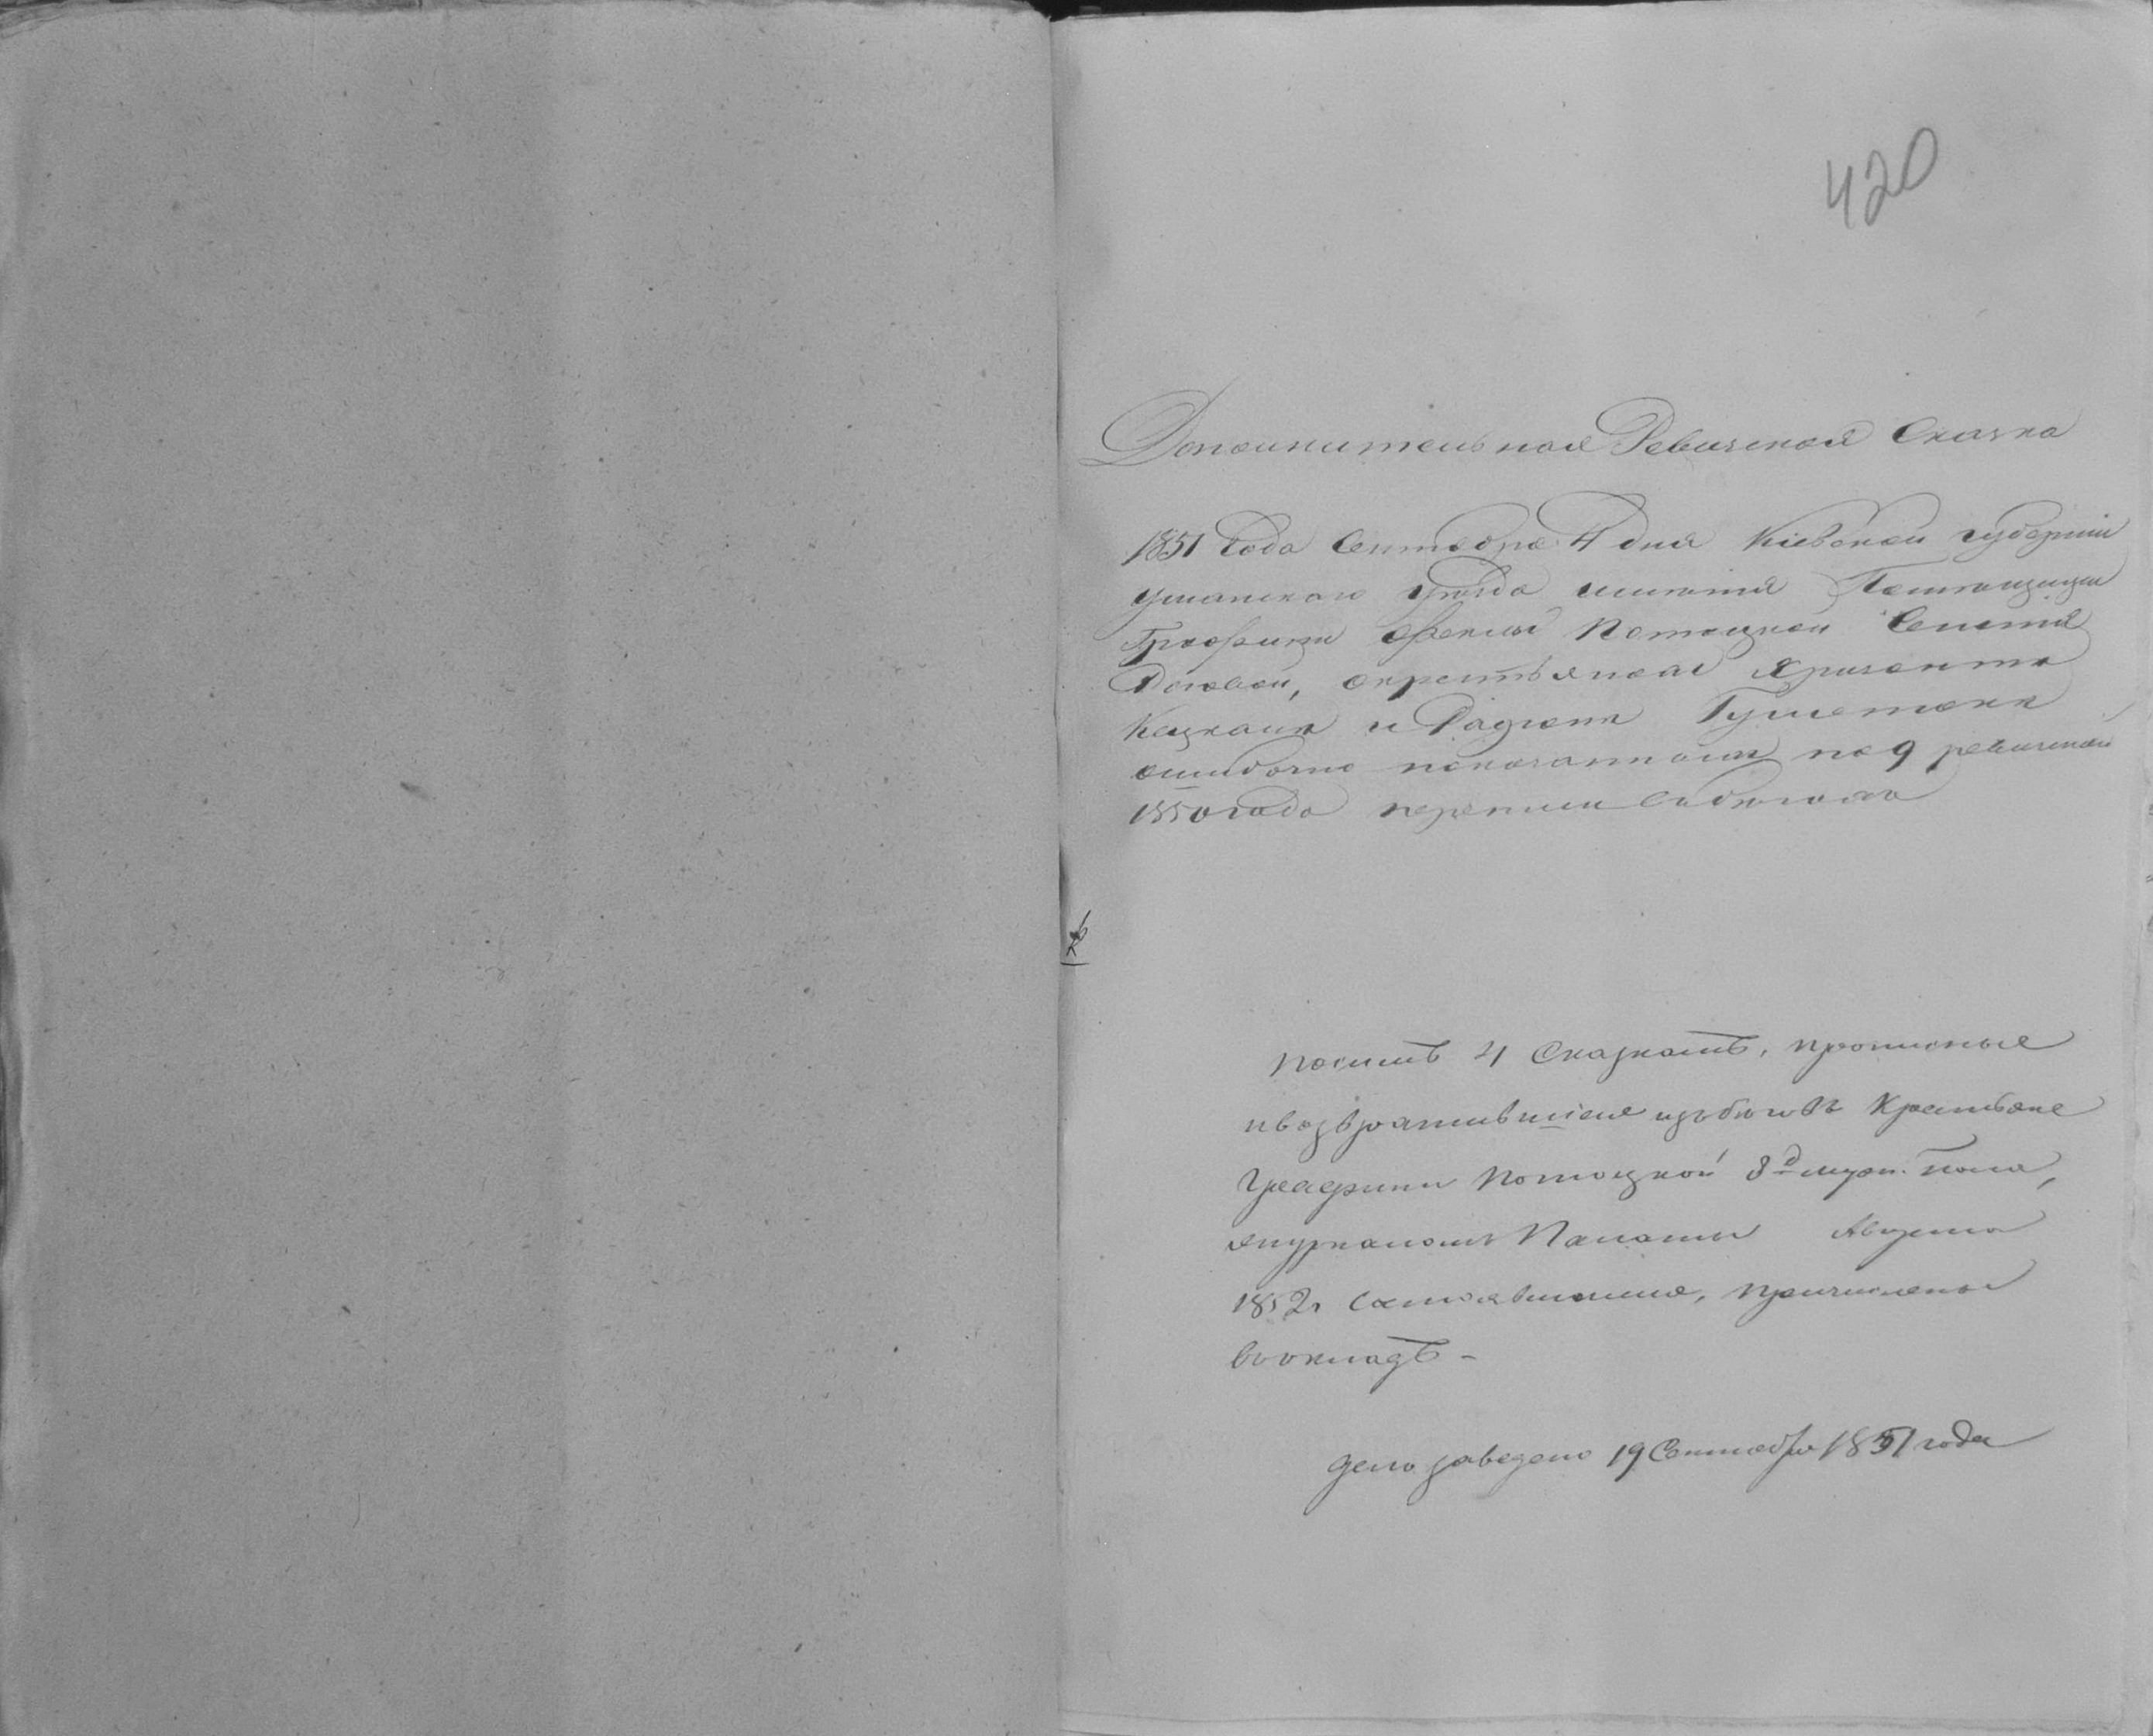 420
Дополнительная Ревизская Сказка
1851 Года Сентября 4 дня Киевской губернии
Уманского уезда имения Помещицы
Графини Потоцкой Селения
Роговой, о крестьянах
Кацкана и
ошибочно показанных по 9 ревизской
1850 года переписи в бегах
По симъ 4 Сказкамъ, прописные
и возвратившиеся изъ беговъ Крестьяне
Графини Потоцкой 8 д. муж. пола,
журналомъ Палаты Августа
1852 г. состоявшимся, причислены
въ окладъ -
Дело заведено 19 Сентября 1851 года